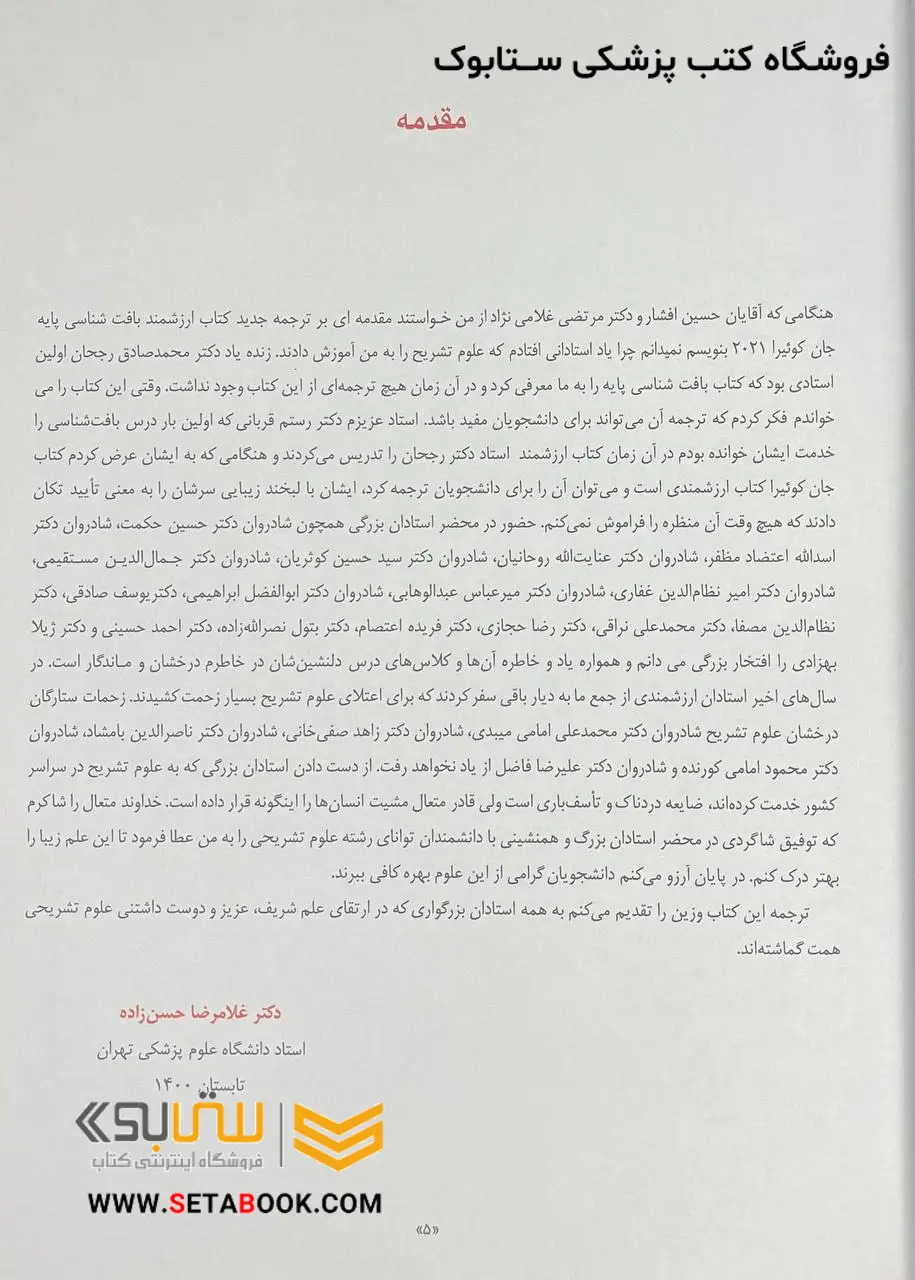 فروشگاه کتب پزشکی ستابوک
مقدمه
هنگامی که آقایان حسین افشار و دکتر مرتضی غلامی نژاد از من خواستند مقدمه ای بر ترجمه جدید کتاب ارزشمند بافت شناسی پایه
جان کوئیرا ۲۰۲۱ بنویسم نمیدانم چرا یاد استادانی افتادم که علوم تشریح را به من آموزش دادند. زنده یاد دکتر محمدصادق رجحان اولین
استادی بود که کتاب بافت شناسی پایه را به ما معرفی کرد و در آن زمان هیچ ترجمه‌ای از این کتاب وجود نداشت. وقتی این کتاب را می
خواندم فکر کردم که ترجمه آن می‌تواند برای دانشجویان مفید باشد. استاد عزیزم دکتر رستم قربانی که اولین بار درس بافت‌شناسی را
خدمت ایشان خوانده بودم در آن زمان کتاب ارزشمند استاد دکتر رجحان را تدریس می‌کردند و هنگامی که به ایشان عرض کردم کتاب
جان کوئیرا کتاب ارزشمندی است و می‌توان آن را برای دانشجویان ترجمه کرد، ایشان با لبخند زیبایی سرشان را به معنی تأیید تکان
دادند که هیچ وقت آن منظره را فراموش نمی‌کنم. حضور در محضر استادان بزرگی همچون شادروان دکتر حسین حکمت، شادروان دکتر
اسدالله اعتضاد مظفر، شادروان دکتر عنایت‌الله روحانیان، شادروان دکتر سید حسین کوثریان، شادروان دکتر جمال‌الدین مستقیمی،
شادروان دکتر امیر نظام‌الدین غفاری، شادروان دکتر میرعباس عبدالوهابی، شادروان دکتر ابوالفضل ابراهیمی، دکتریوسف صادقی، دکتر
نظام‌الدین مصفا، دکتر محمدعلی نراقی، دکتر رضا حجازی، دکتر فریده اعتصام، دکتر بتول نصرالله‌زاده، دکتر احمد حسینی و دکتر ژیلا
بهزادی را افتخار بزرگی می دانم و همواره یاد و خاطره آن‌ها و کلاس‌های درس دلنشین‌شان در خاطرم درخشان و ماندگار است. در
سال‌های اخیر استادان ارزشمندی از جمع ما به دیار باقی سفر کردند که برای اعتلای علوم تشریح بسیار زحمت کشیدند. زحمات ستارگان
درخشان علوم تشریح شادروان دکتر محمدعلی امامی میبدی، شادروان دکتر زاهد صفی‌خانی، شادروان دکتر ناصرالدین بامشاد، شادروان
دکتر محمود امامی کورنده و شادروان دکتر علیرضا فاضل از یاد نخواهد رفت. از دست دادن استادان بزرگی که به علوم تشریح در سراسر
کشور خدمت کرده‌اند، ضایعه دردناک و تأسف‌باری است ولی قادر متعال مشیت انسان‌ها را اینگونه قرار داده است. خداوند متعال را شاکرم
که توفیق شاگردی در محضر استادان بزرگ و همنشینی با دانشمندان توانای رشته علوم تشریحی را به من عطا فرمود تا این علم زیبا را
بهتر درک کنم. در پایان آرزو می‌کنم دانشجویان گرامی از این علوم بهره کافی ببرند.
ترجمه این کتاب وزین را تقدیم می‌کنم به همه استادان بزرگواری که در ارتقای علم شریف، عزیز و دوست داشتنی علوم تشریحی
همت گماشته‌اند.
دکتر غلامرضا حسن‌زاده
استاد دانشگاه علوم پزشکی تهران
تابستان ۱۴۰۰
ستابوک
فروشگاه اینترنتی کتاب
WWW.SETABOOK.COM
«۵»